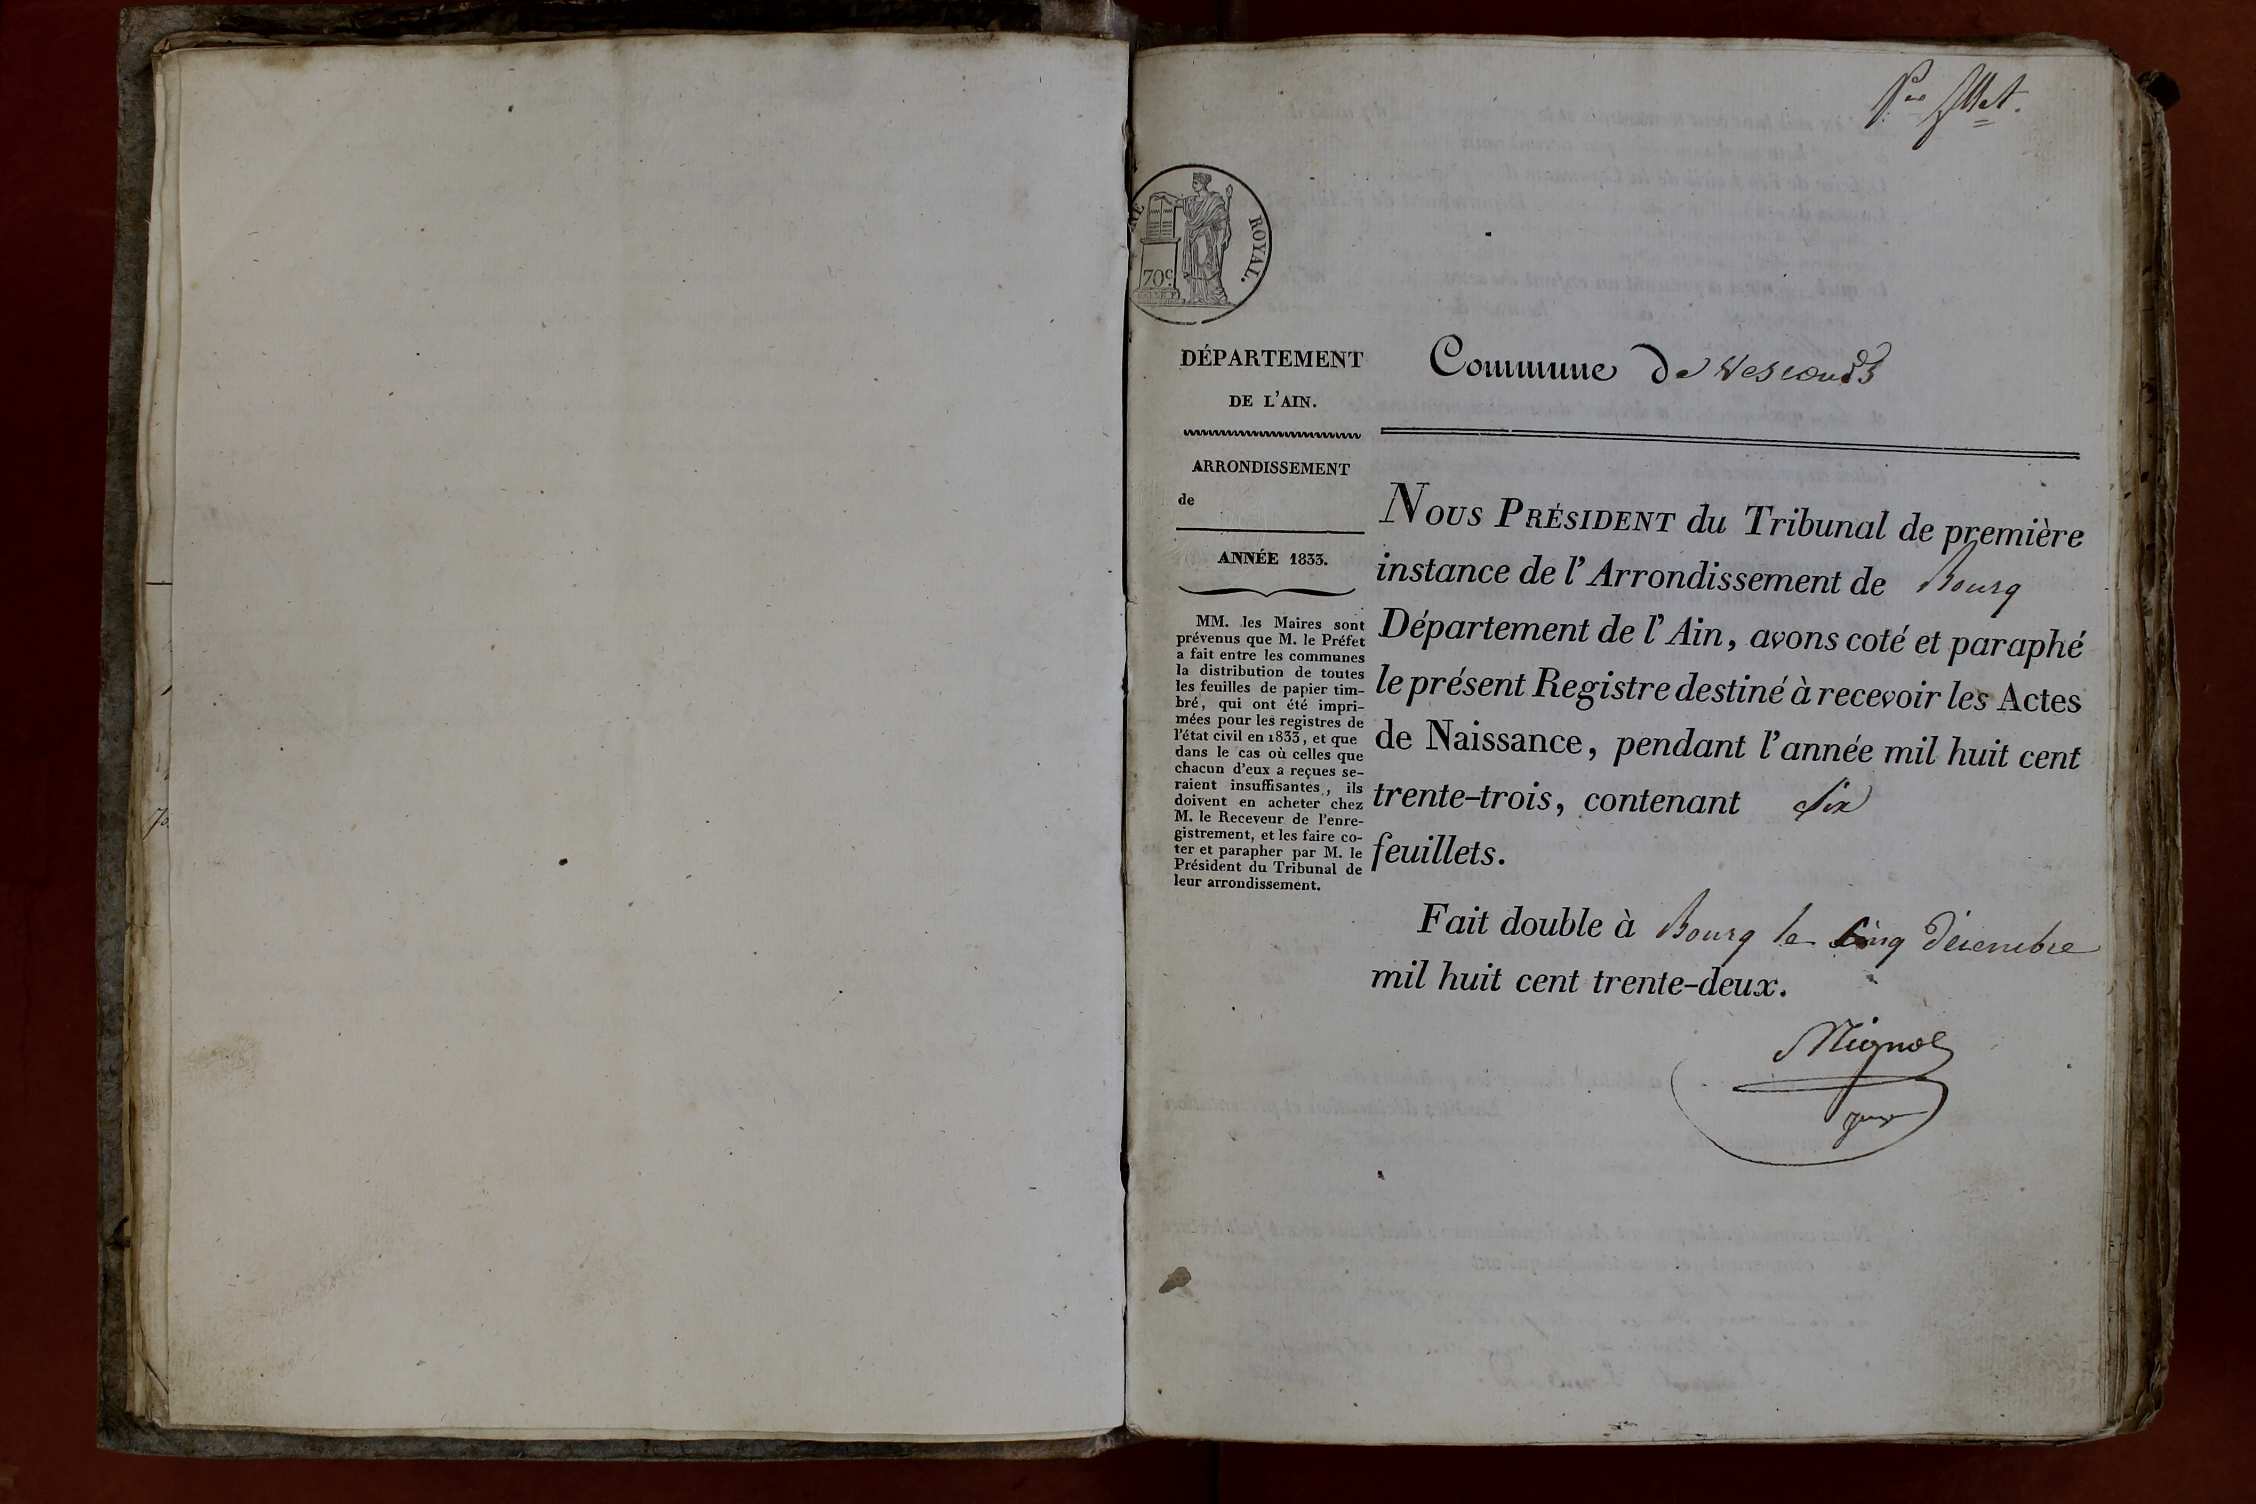 Per fllet.
ROYAL.
70 c.
DÉPARTEMENT
DE L'AIN.
ARRONDISSEMENT
de
ANNÉE 1833.
MM. les Maires sont
prévenus que M. le Préfet
a fait entre les communes
la distribution de toutes
les feuilles de papier tim-
bré, qui ont été impri-
mées pour les registres de
l'état civil en 1833, et que
dans le cas où celles que
chacun d'eux a reçues se-
raient insuffisantes, ils
doivent en acheter chez
M. le Receveur de l'enre-
gistrement, et les faire co-
ter et parapher par M. le
Président du Tribunal de
leur arrondissement.
Commune de
NOUS PRÉSIDENT du Tribunal de première
instance de l'Arrondissement de Bourg
Département de l'Ain, avons coté et paraphé
le présent Registre destiné à recevoir les Actes
de Naissance, pendant l'année mil huit cent
trente-trois, contenant Six
feuillets.
Fait double à Bourg le Cinq Décembre
mil huit cent trente-deux.